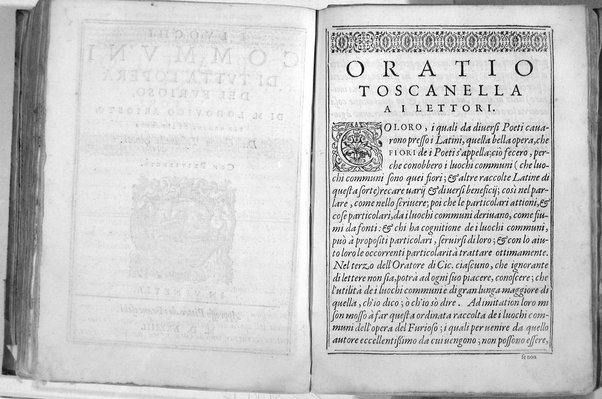 ORATIO
TOSCANELLA
A I LETTORI.
COLORO, i quali da diuersi Poeti caua-
rono presso i Latini, quella bella opera, che
FIORI de i Poeti s'appella; ciò fecero, per-
che conobbero i luochi communi (che luo-
chi communi sono quei fiori; & altre raccolte Latine di
questa sorte) recare uarij & diuersi beneficij; così nel par-
lare, come nello scriuere; poi che le particolari attioni, &
cose particolari, da i luochi communi deriuano, come fiu-
mi da fonti: & chi ha cognitione de i luochi communi,
può à propositi particolari, seruirsi di loro; & con lo aiu-
to loro le occorrenti particolarità trattare ottimamente.
Nel terzo dell'Oratore di Cic. ciascuno, che ignorante
di lettere non sia, potrà ad ogni suo piacere, conoscere; che
l'utilità de i luochi communi è di gran lunga maggiore di
quella, ch'io dico; ò ch'io sò dire. Ad imitation loro mi
son mosso à far questa ordinata raccolta de i luochi com-
muni dell'opera del Furioso; i quali per uenire da quello
autore eccellentissimo da cui uengono; non possono essere,
se non